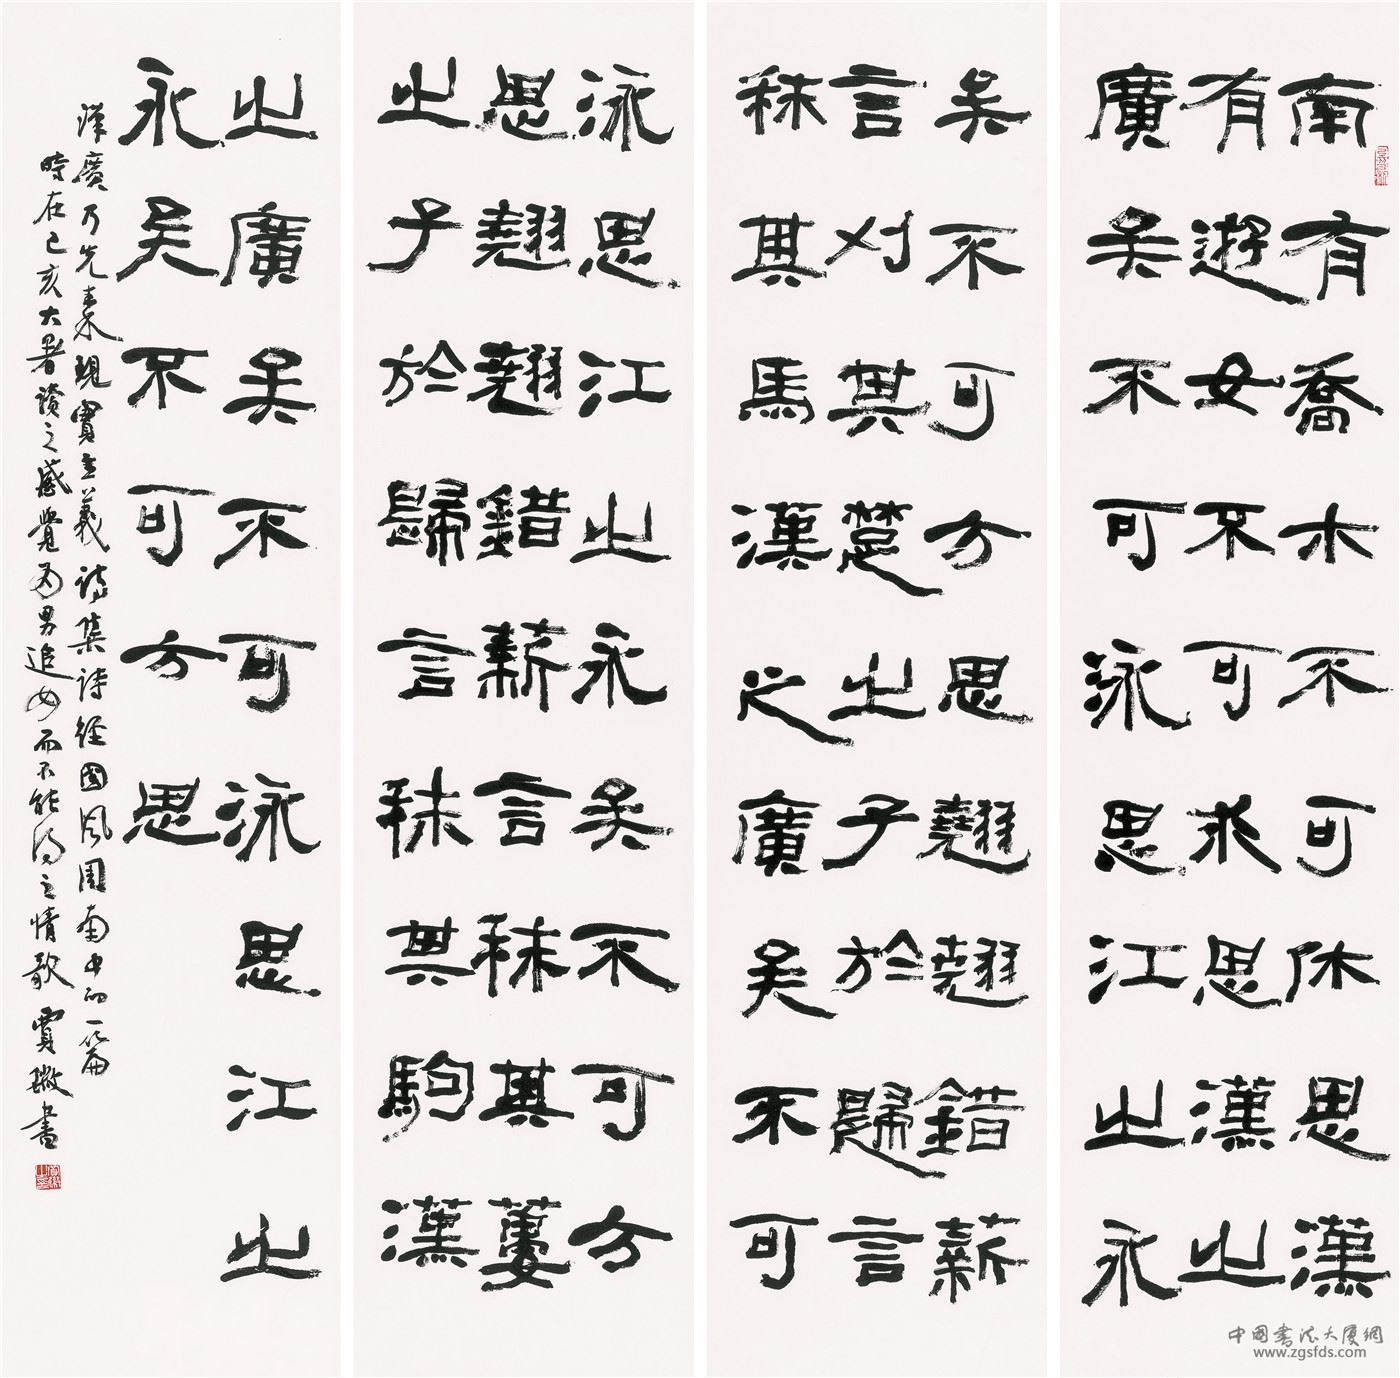 南有喬木不可休思漢
有遊女不可求思漢之
廣矣不可泳思江之永
矣不可方思翹翹錯薪
言刈其楚之子於歸言
秣其馬漢之廣矣不可
泳思江之永矣不可方
思翹翹錯薪言秣其蔞
之子於歸言秣其駒漢
之廣矣不可泳思江之
永矣不可方思
漢廣乃先秦現實主義詩集詩經國風周南中的一篇
時在己亥大暑讀之感覺為男追女而不能得之情歌 賈書
中国書法大厦網
www.zgsfds.com